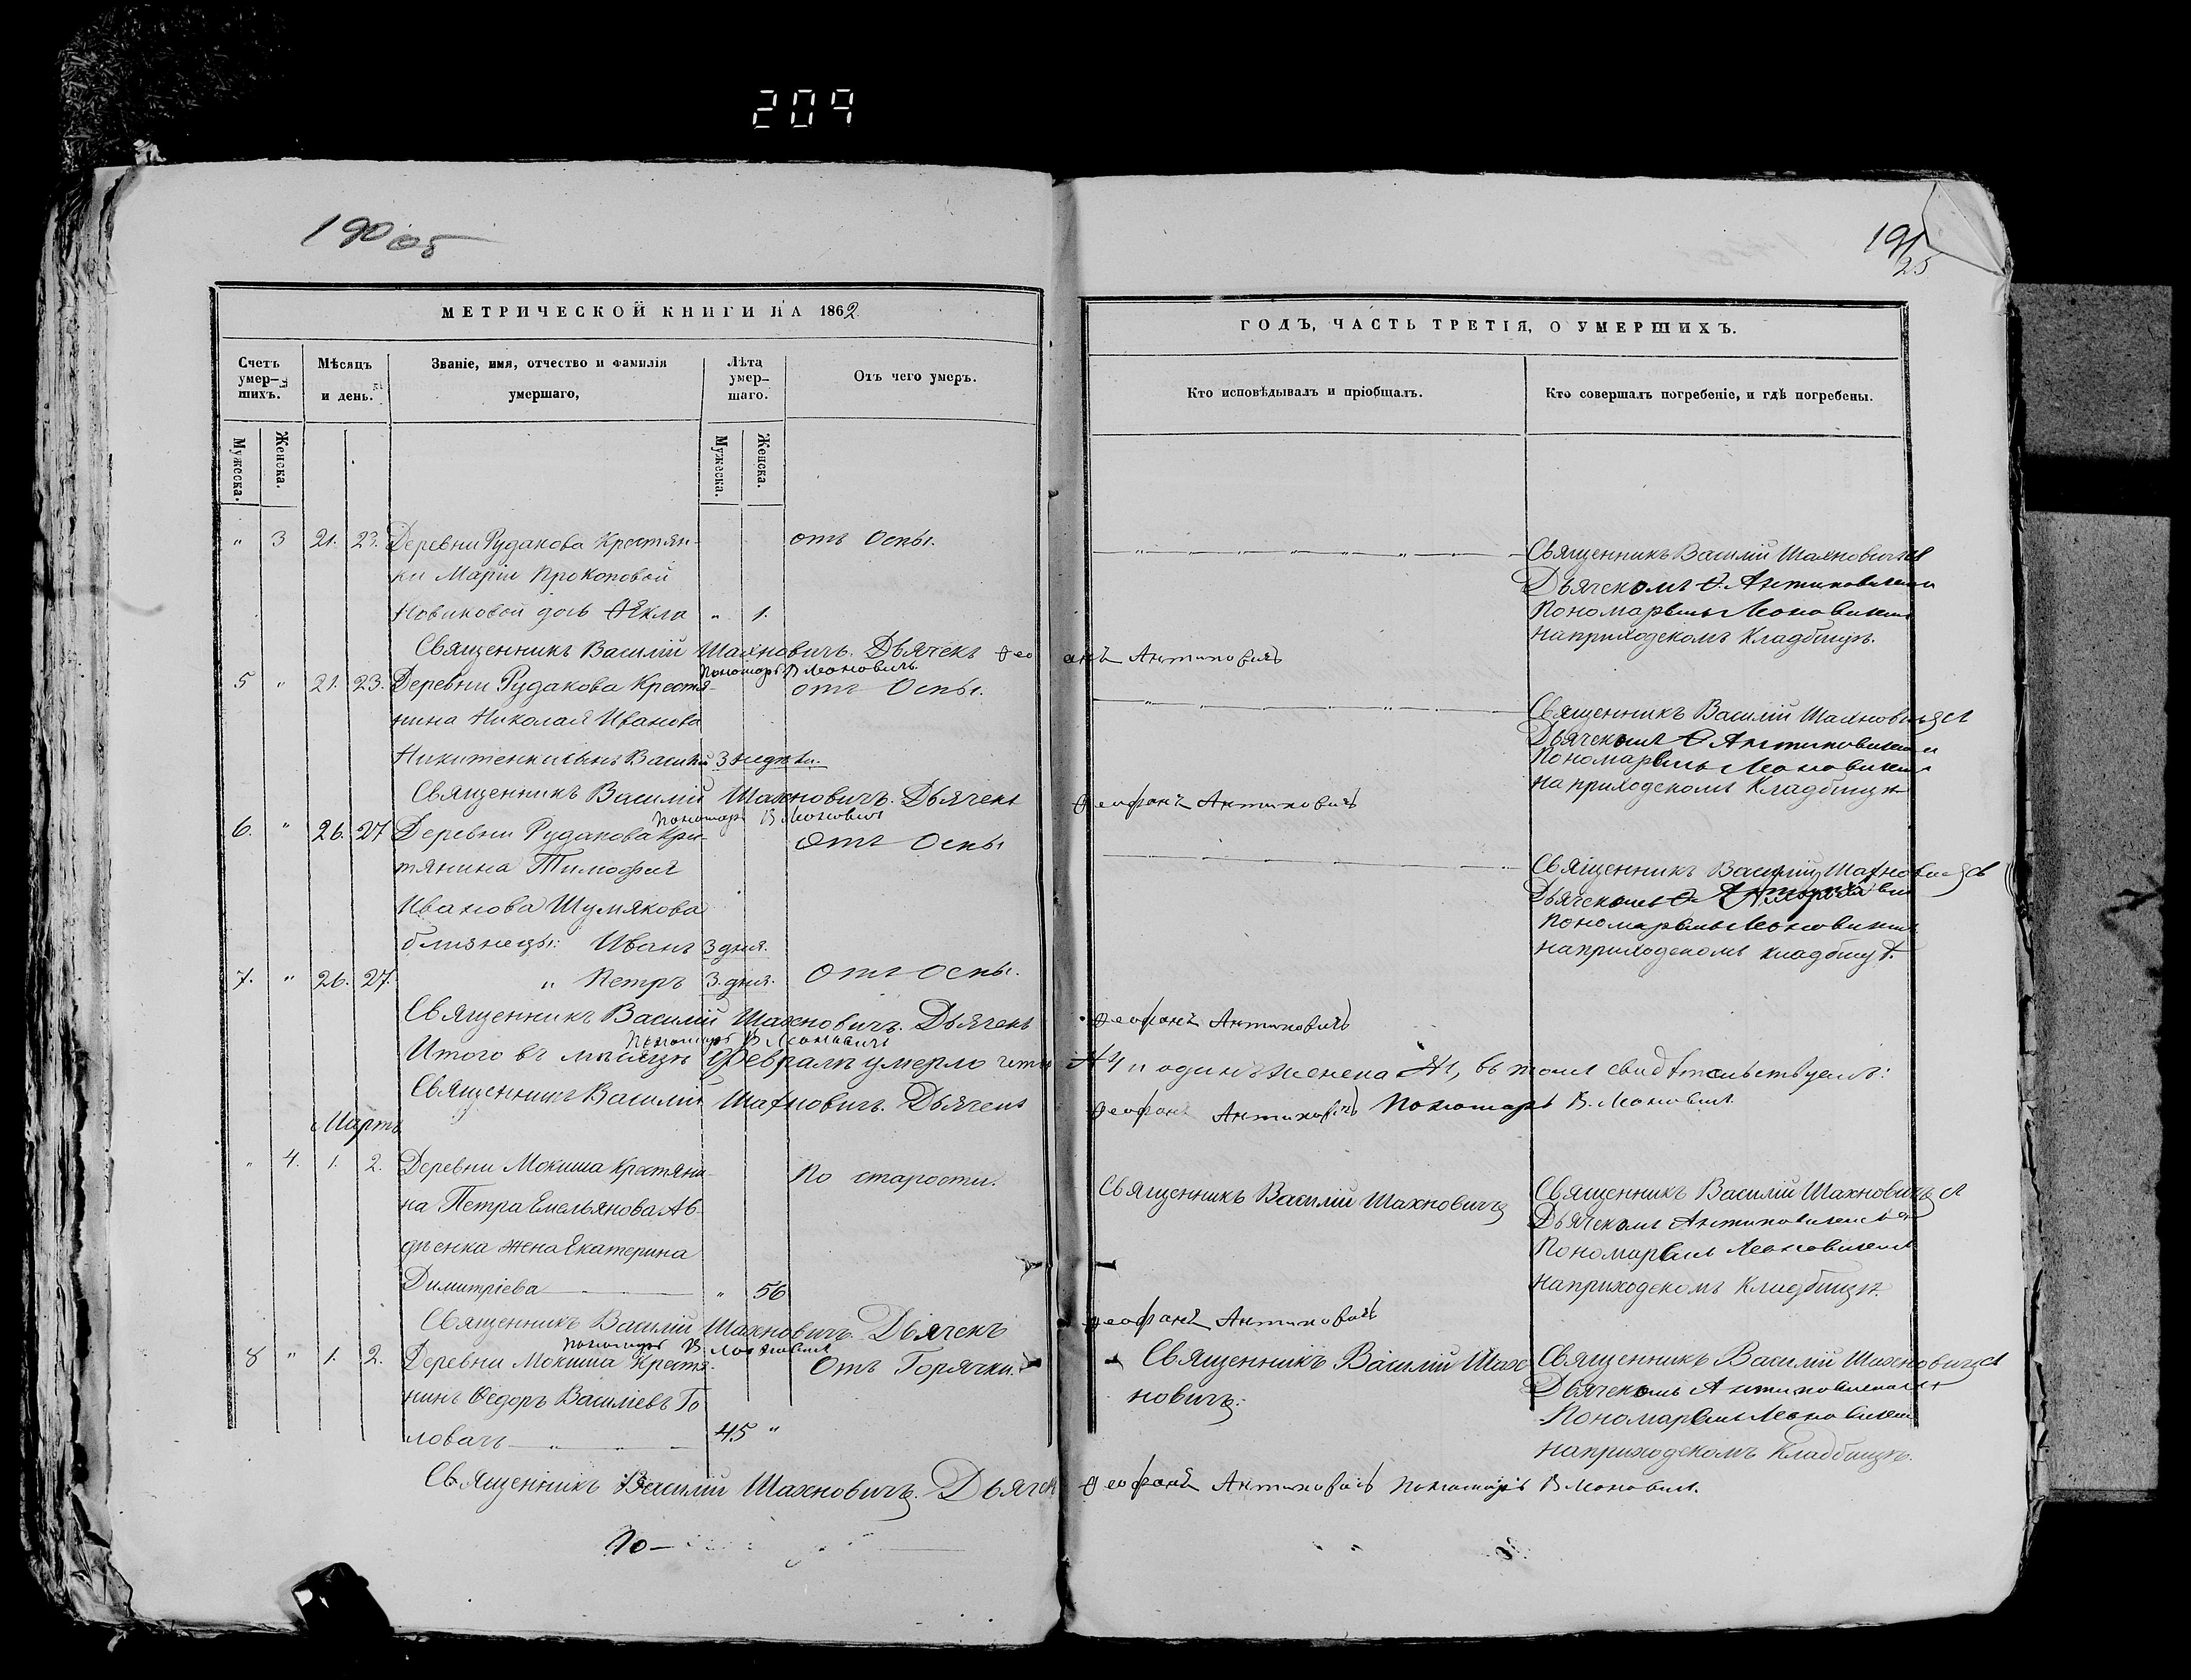 209
190 об
191
25
МЕТРИЧЕСКОЙ КНИГИ НА 1862
ГОДЪ, ЧАСТЬ ТРЕТІЯ, О УМЕРШИХЪ.
Счетъ умер-шихъ.
Мѣсяцъ и день.
Званіе, имя, отчество и фамилія умершаго,
Лѣта умер-шаго.
Отъ чего умеръ.
Кто исповѣдывалъ и пріобщалъ.
Кто совершалъ погребеніе, и гдѣ погребены.
Мужеска.
Женска.
Мужеска.
Женска.
" 3 21. 23. Деревни Рудакова Крестян-
ки Маріи Прокоповой
Новиковой дочь Ѳекла " 1.
отъ Оспы.
Священникъ Василій Шахновичъ съ
Дьячкомъ Ѳ. Антиповичемъ и
Пономаремъ Моновичемъ
на приходскомъ Кладбищѣ.
Священникъ Василій Шахновичъ. Дьячекъ Ѳеофанъ Антиповичъ
Пономарь В Моновичъ
5 " 21. 23. Деревни Рудакова Крестя-
нина Николая Иванова
Никитенки сынъ Василій 3 недѣли.
отъ Оспы.
Священникъ Василій Шахновичъ съ
Дьячкомъ Ѳ Антиповичемъ и
Пономаремъ Моновичемъ
на приходскомъ Кладбищѣ
Священникъ Василій Шахновичъ. Дьячекъ Ѳеофанъ Антиповичъ
Пономарь В Моновичъ
6. " 26. 27 Деревни Рудакова Крес-
тянина Тимофея
Иванова Шумякова
близнецы: Иванъ 3 дня.
отъ Оспы
Священникъ Василій Шахновичъ съ
Дьячкомъ Ѳ
Пономаремъ Моновичемъ
на приходскомъ кладбищѣ.
7. " 26. 27. " Петръ 3. дня. отъ Оспы.
Священникъ Василій Шахновичъ. Дьячекъ Ѳеофанъ Антиповичъ
Пономарь В Моновичъ
Итого въ мѣсяцѣ Февралѣ умерло и одинъ женска въ томъ свидѣтельствуемъ:
Священникъ Василій Шахновичъ. Дьячекъ Ѳеофанъ Антиповичъ Пономарь В. Моновичъ
Мартъ
" 4. 1. 2. Деревни Мокиша Крестяни-
на Петра Емельянова Ав-
дѣенка жена Екатерина
Димитріева " 56
По старости.
Священникъ Василій Шахновичъ
Священникъ Василій Шахновичъ съ
Дьячкомъ Антиповичемъ и
Пономаремъ Моновичемъ
на приходскомъ Кладбищѣ.
Священникъ Василій Шахновичъ. Дьячекъ Ѳеофанъ Антиповичъ
Пономарь В. Моновичъ
8 " 1. 2. Деревни Мокиша Крестя-
нинъ Ѳедоръ Василіевъ Го
ловачъ 45 "
Отъ Горячки.
Священникъ Василій Шах
новичъ:
Священникъ Василій Шахновичъ съ
Дьячкомъ Антиповичемъ и
Пономаремъ Моновичемъ
на приходскомъ Кладбищѣ.
Священникъ Василій Шахновичъ. Дьячекъ Ѳеофанъ Антиповичъ Пономарь В Моновичъ.
По-